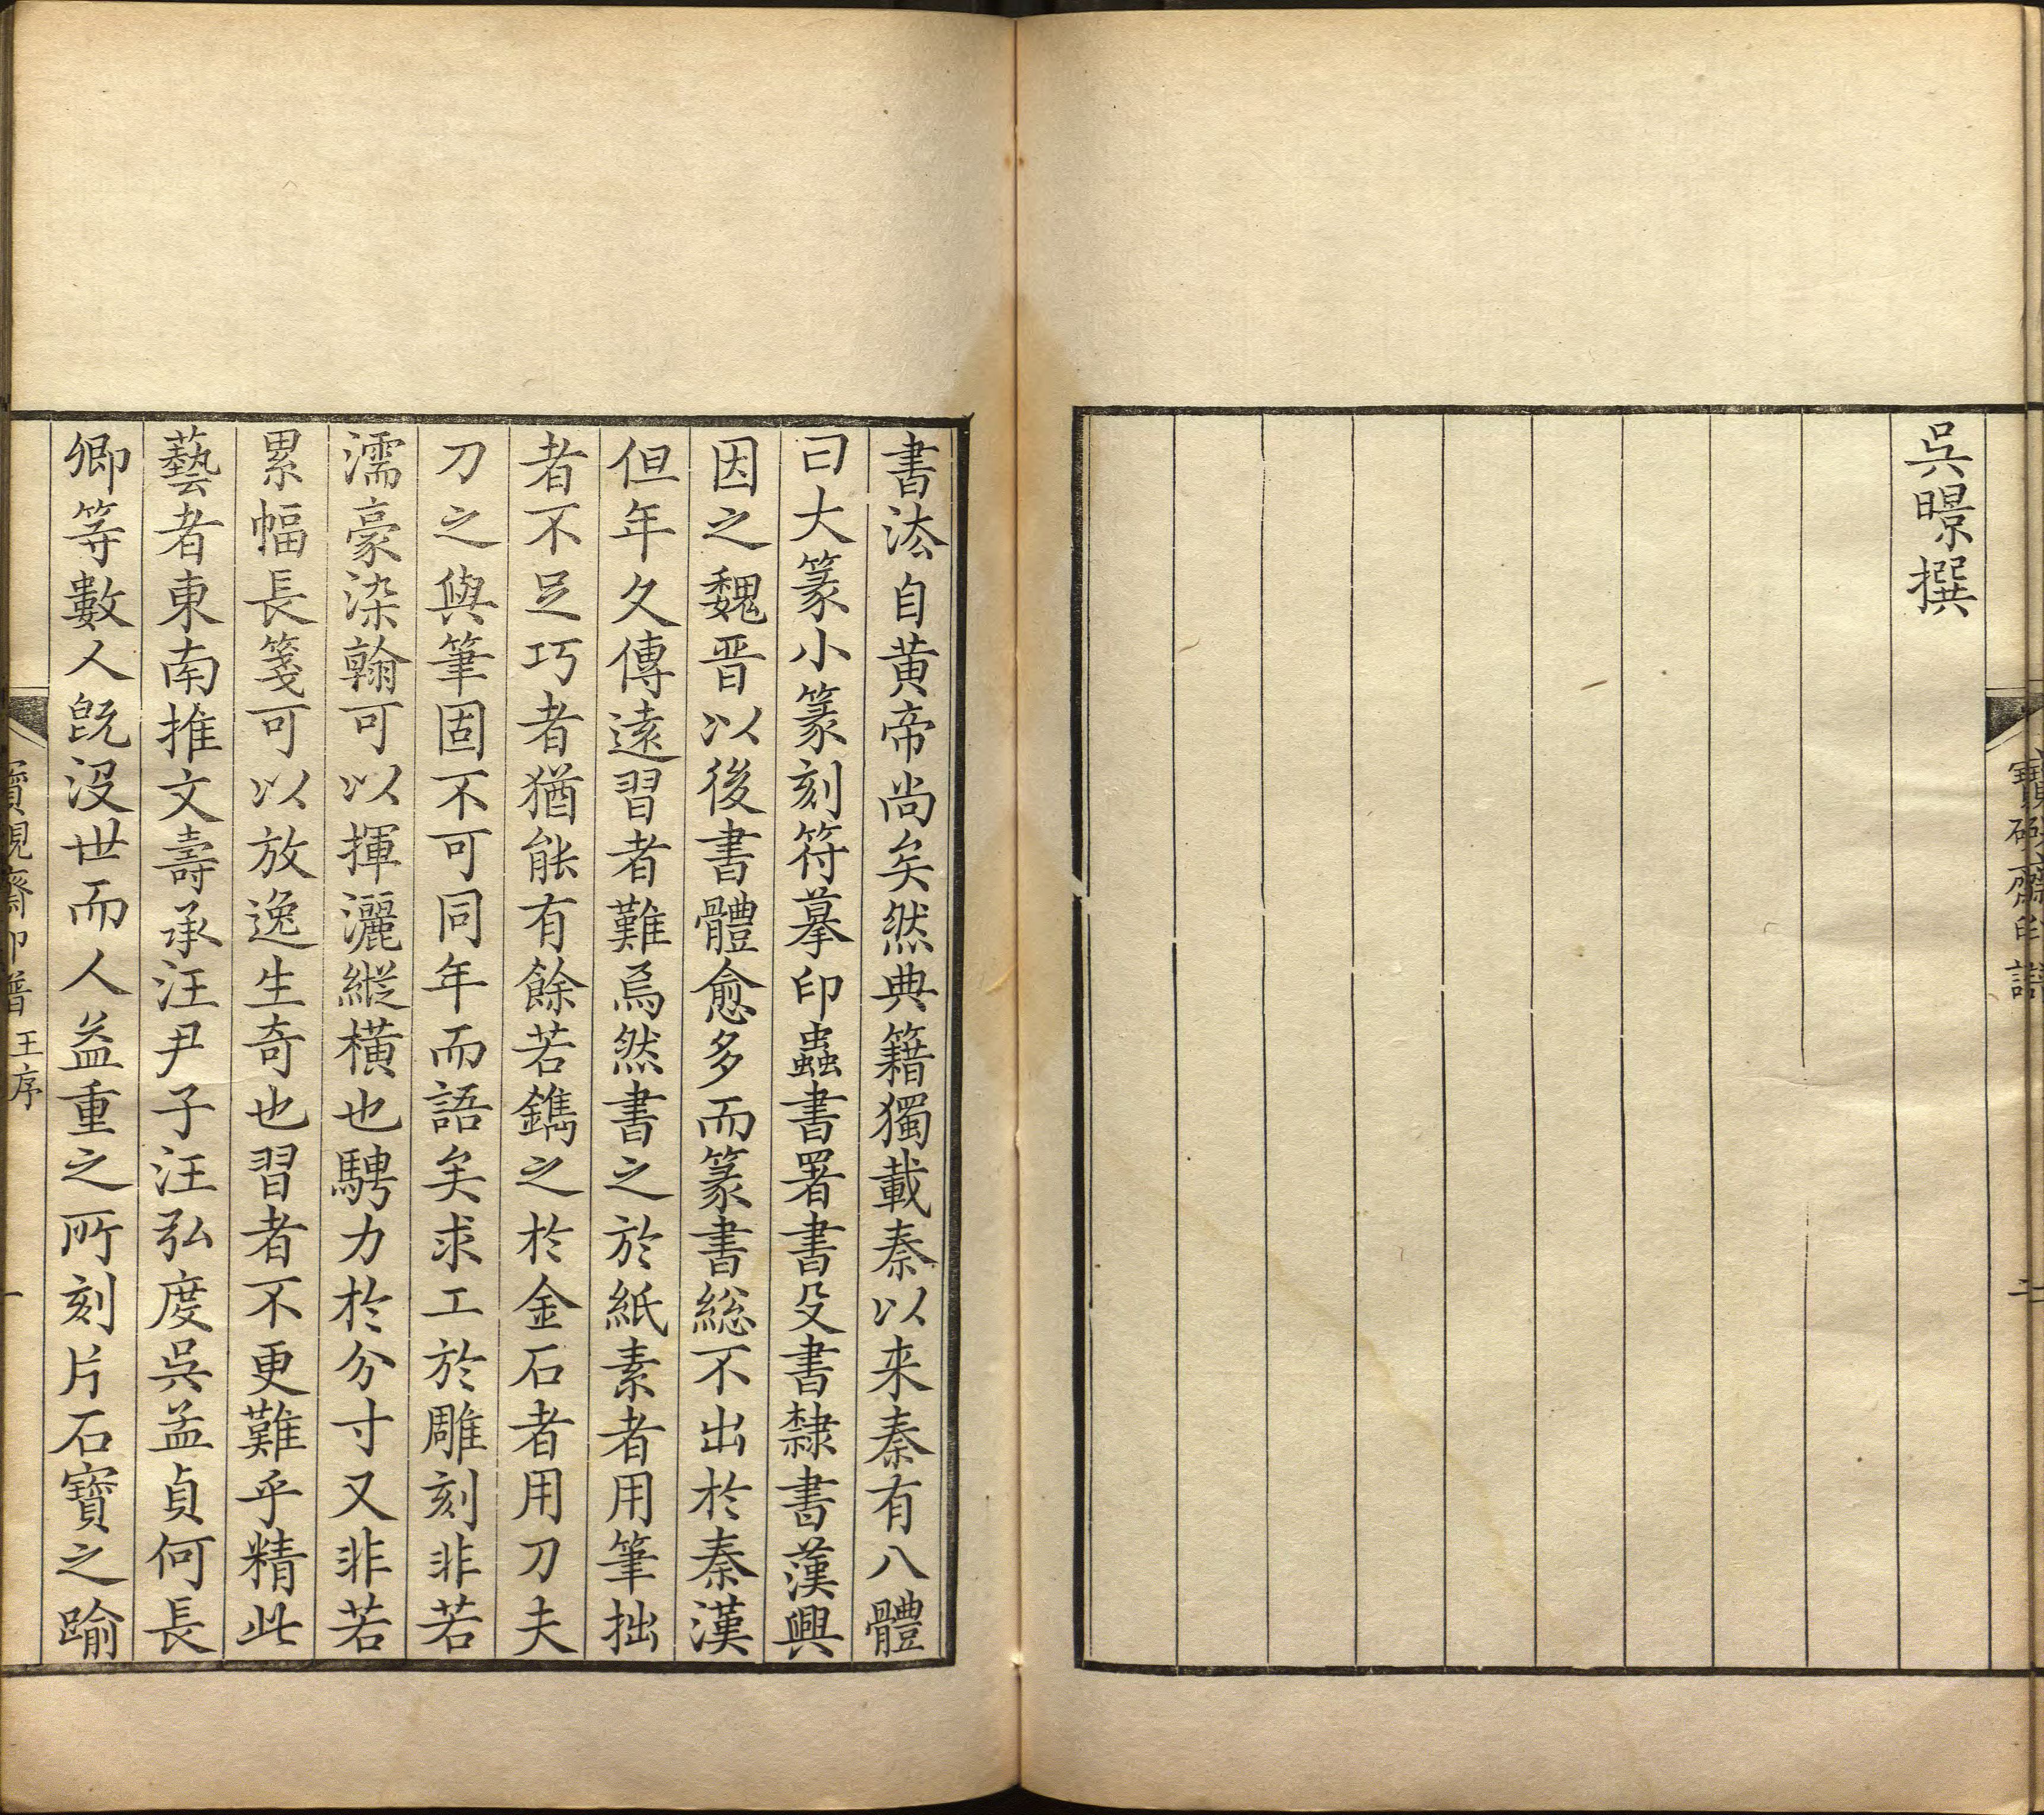 吳暻撰
寶硯齋印譜
二
書法自黄帝尚矣然典籍獨載秦以来秦有八體
曰大篆小篆刻符摹印蟲書署書殳書隸書漢興
因之魏晉以後書體愈多而篆書総不出於秦漢
但年久傳遠習者難焉然書之於紙素者用筆拙
者不足巧者猶能有餘若鐫之於金石者用刀夫
刀之與筆固不可同年而語矣求工於雕刻非若
濡豪染翰可以揮灑縱橫也騁力於分寸又非若
累幅長箋可以放逸生奇也習者不更難乎精此
藝者東南推文壽承汪尹子汪弘度吳孟貞何長
卿等數人旣没世而人益重之所刻片石寶之踰
寶硯齋印譜 王序
一